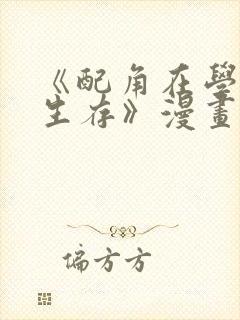 《配角在學
生存》漫畫
偏方方